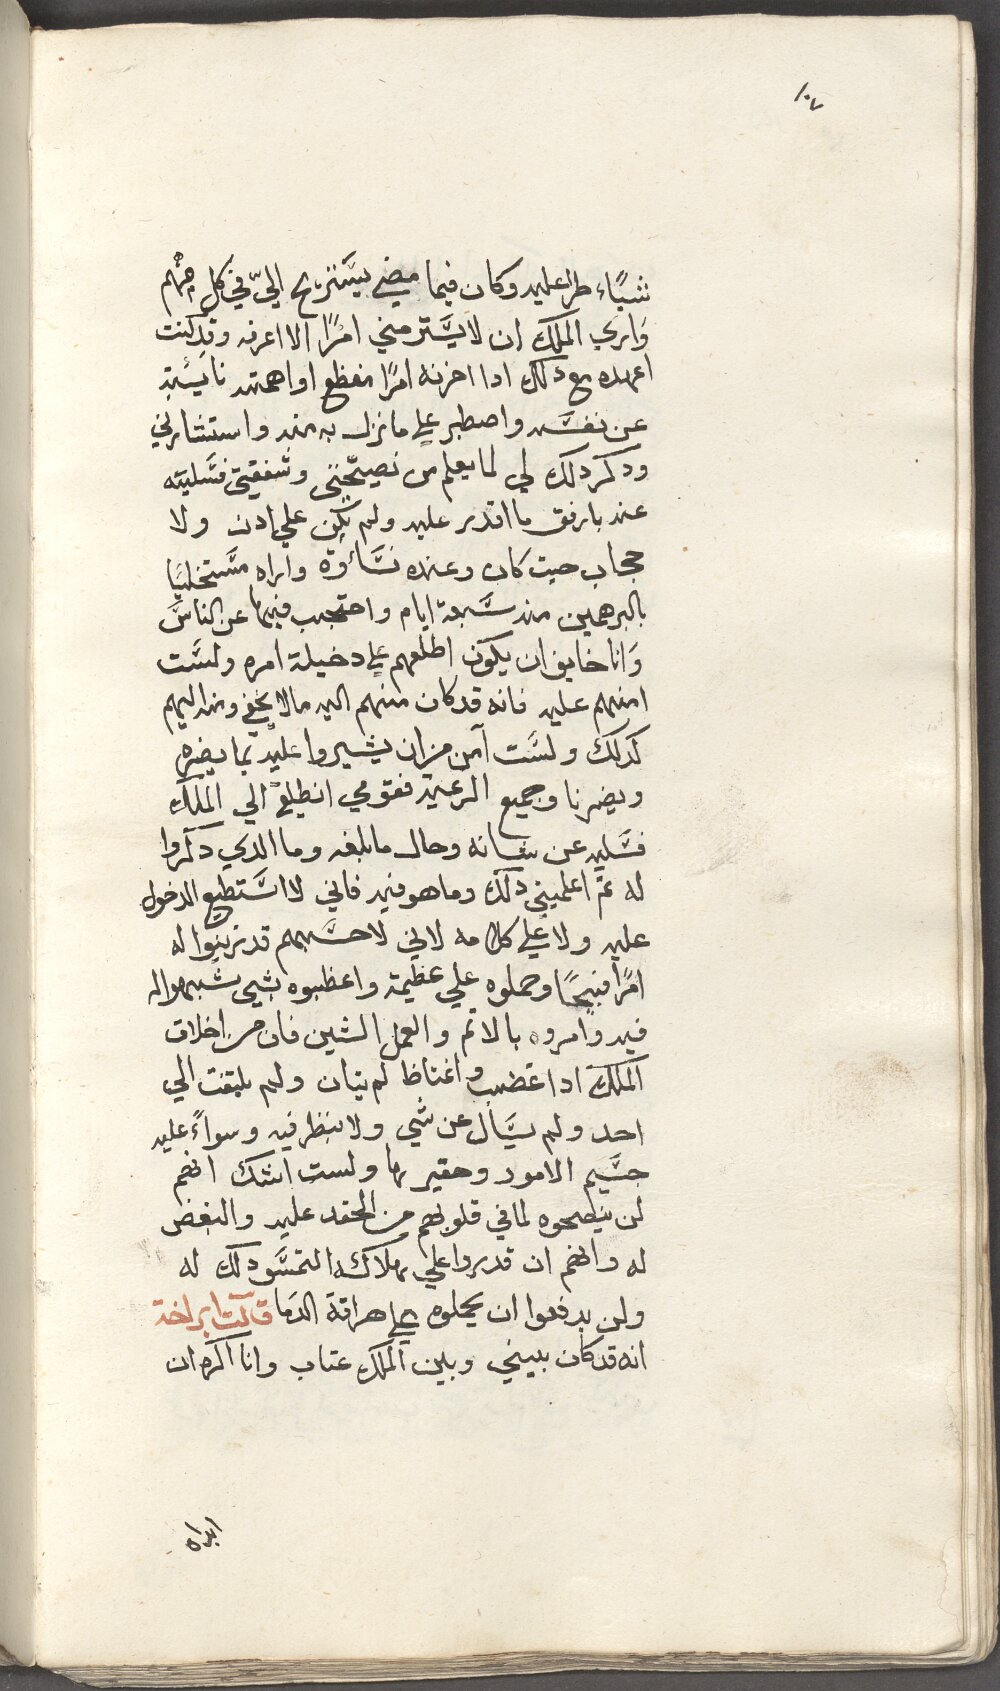 ١٠٧
شيًاء طرا عليه وكان فيما مضي يستريح اليّ في كل مهم
وَاري الملك ان لا يستر مني امرًا الا اعرفه وقد كنت
اعهده مع دلك ادا احزنه امرًا مفظع او اهمته نايبة
عن نفسه واصطبر علي ما نزل به منه واستشارني
ودكر دلك لي لما يعلم من نصيحتي وشفقتي فسليته
عنه بارفق ما اقدر عليه ولم يكن علي ادن ولا
حجاب حيت كان وعنده نساؤه واراه مستخليًا
بالبرهمين مند سبعة ايام واحتجب فيها عن الناس
وَانا خايف ان يكون اطلعهم علي دخيلة امره ولست
امنهم عليه فانه قد كان منهم اليه ما لا يخفي ومنه اليهم
كدلك ولست آمن من ان يشيروا عليه بما يضره
ويضرنا وجميع الرعية فقومي انطلقي الي الملك
فسليه عن شانه وحال ما بلغه وما الدي دكروا
له تم اعلميني دلك وما هو فيه فاني لا استطيع الدخول
عليه ولا علي كلامه لاني لاحسبهم قد زينوا له
امرًا قبيحًا وحملوه علي عظيمة واغظبوه بشي شبهوا له
فيه وامروه بالاتم والعمل الشين فان من اخلاق
الملك ادا غضب واغتاظ لم يتان ولم يلتفت الي
احد ولم يسال عن شي ولا ينظر فيه وسواءً عليه
جسيم الامور وحقيرها ولست اشك انهم
لن ينصحوه لما في قلوبهم من الحقد عليه والبغض
له وانهم ان قدروا علي هلاكه التمسو دلك له
ولن يدفعوا ان يحملوه علي هراقة الدما قالت ايراخت
انه قد كان بيني وبين الملك عتاب وانا اكره ان